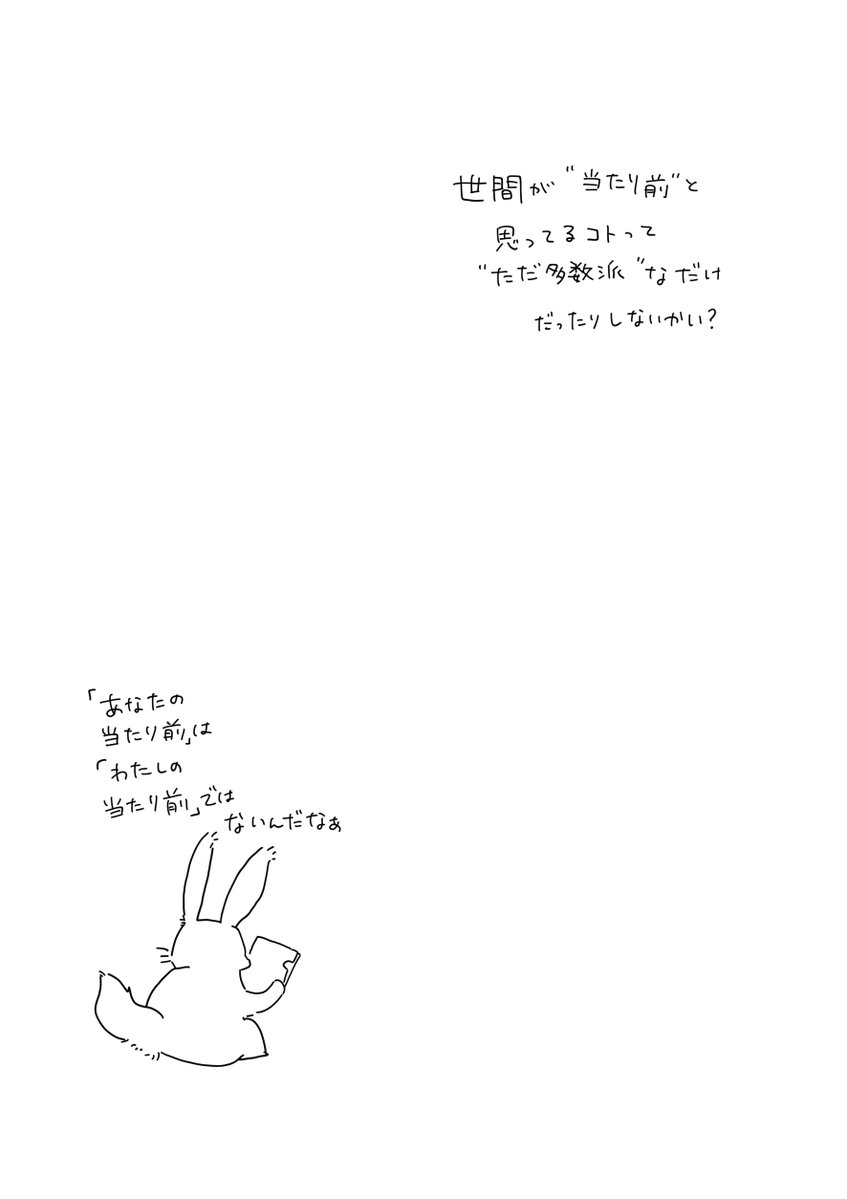 世間が“当たり前”と
思ってるコトって
“ただ多数派”なだけ
だったりしないかい?
「あなたの
当たり前」は
「わたしの
当たり前」では
ないんだなぁ